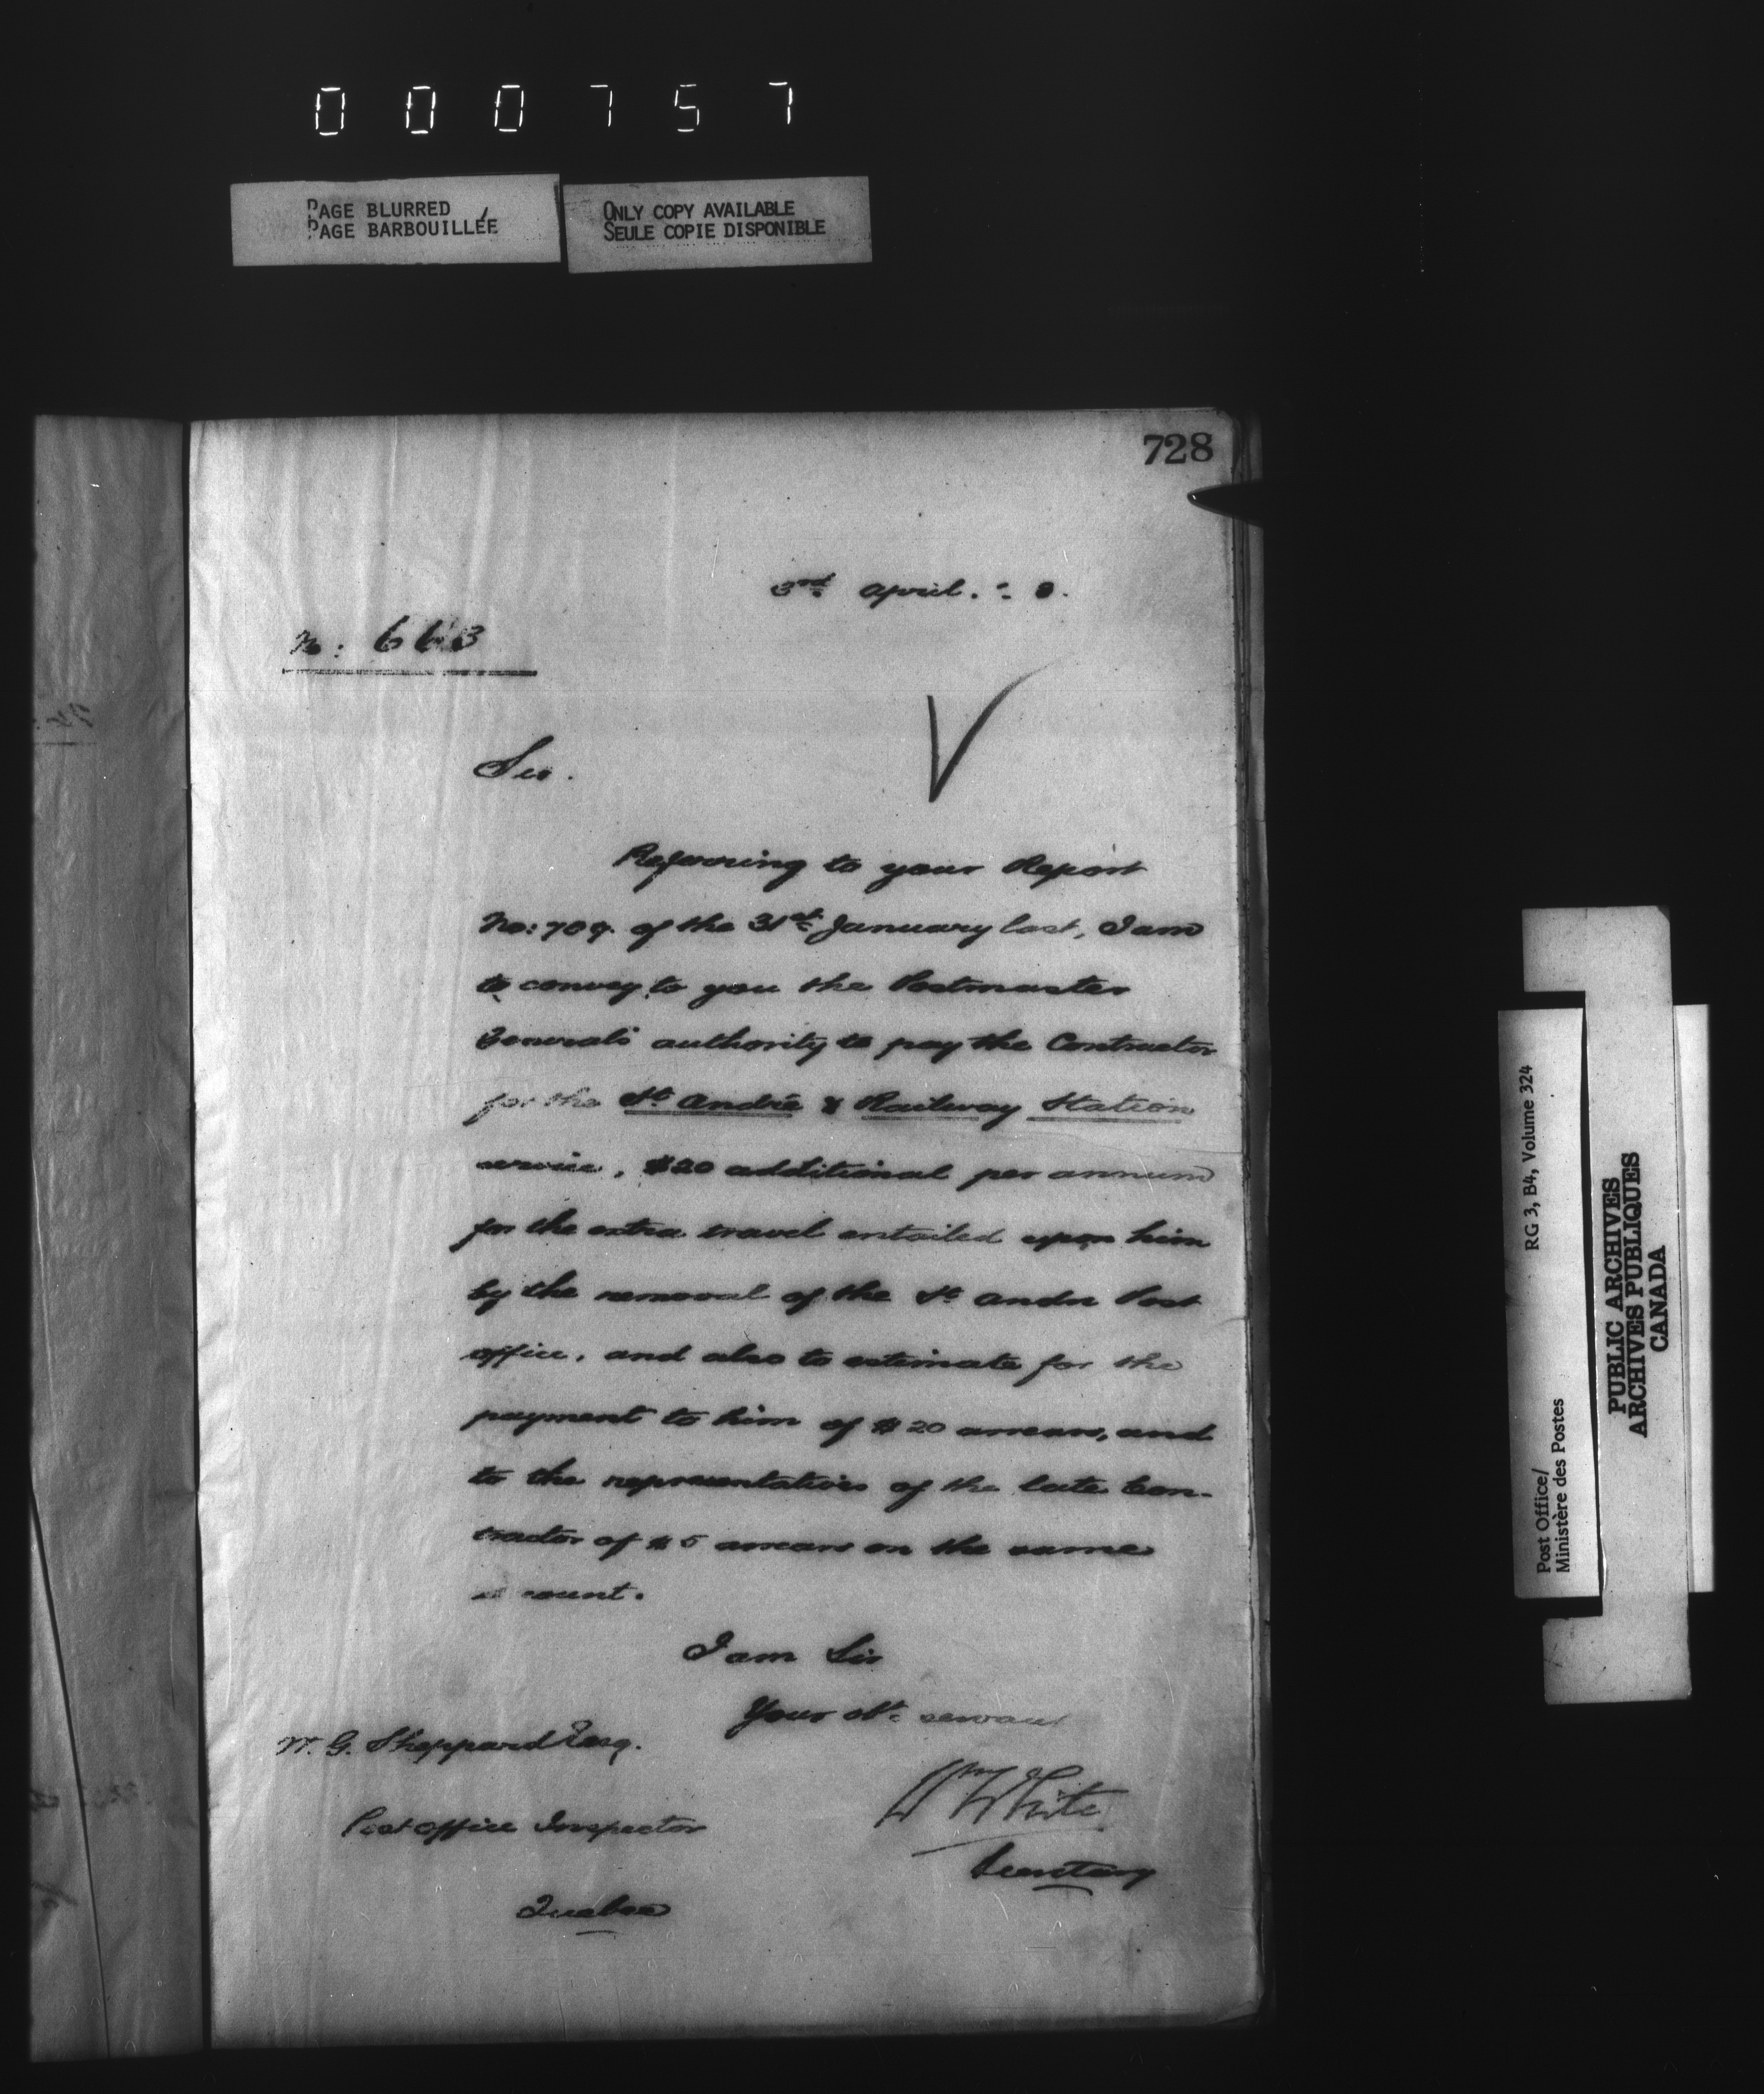 000757
PAGE BLURRED
PAGE BARBOUILLÉE
ONLY COPY AVAILABLE
SEULE COPIE DISPONIBLE
728
3rd April.
No: 663
Sir.
Referring to your Report
No: 709. of the 31st January last, I am
to convey to you the Postmaster
General's authority to pay the Contractor
for the St André & Railway Station
service, $20 additional per annum
for the extra travel entailed upon him
by the removal of the St Andre Post
office, and also to estimate for the
payment to him of $20 arrears, and
to the representatives of the late Con-
tractor of $5 arrears on the same
account.
I am Sir
Your obt. servant
W. G. Sheppard Esq.
Wm White
Post office Inspector
Secretary
Quebec
RG 3, B4, Volume 324
Post Office/
Ministère des Postes
PUBLIC ARCHIVES
ARCHIVES PUBLIQUES
CANADA